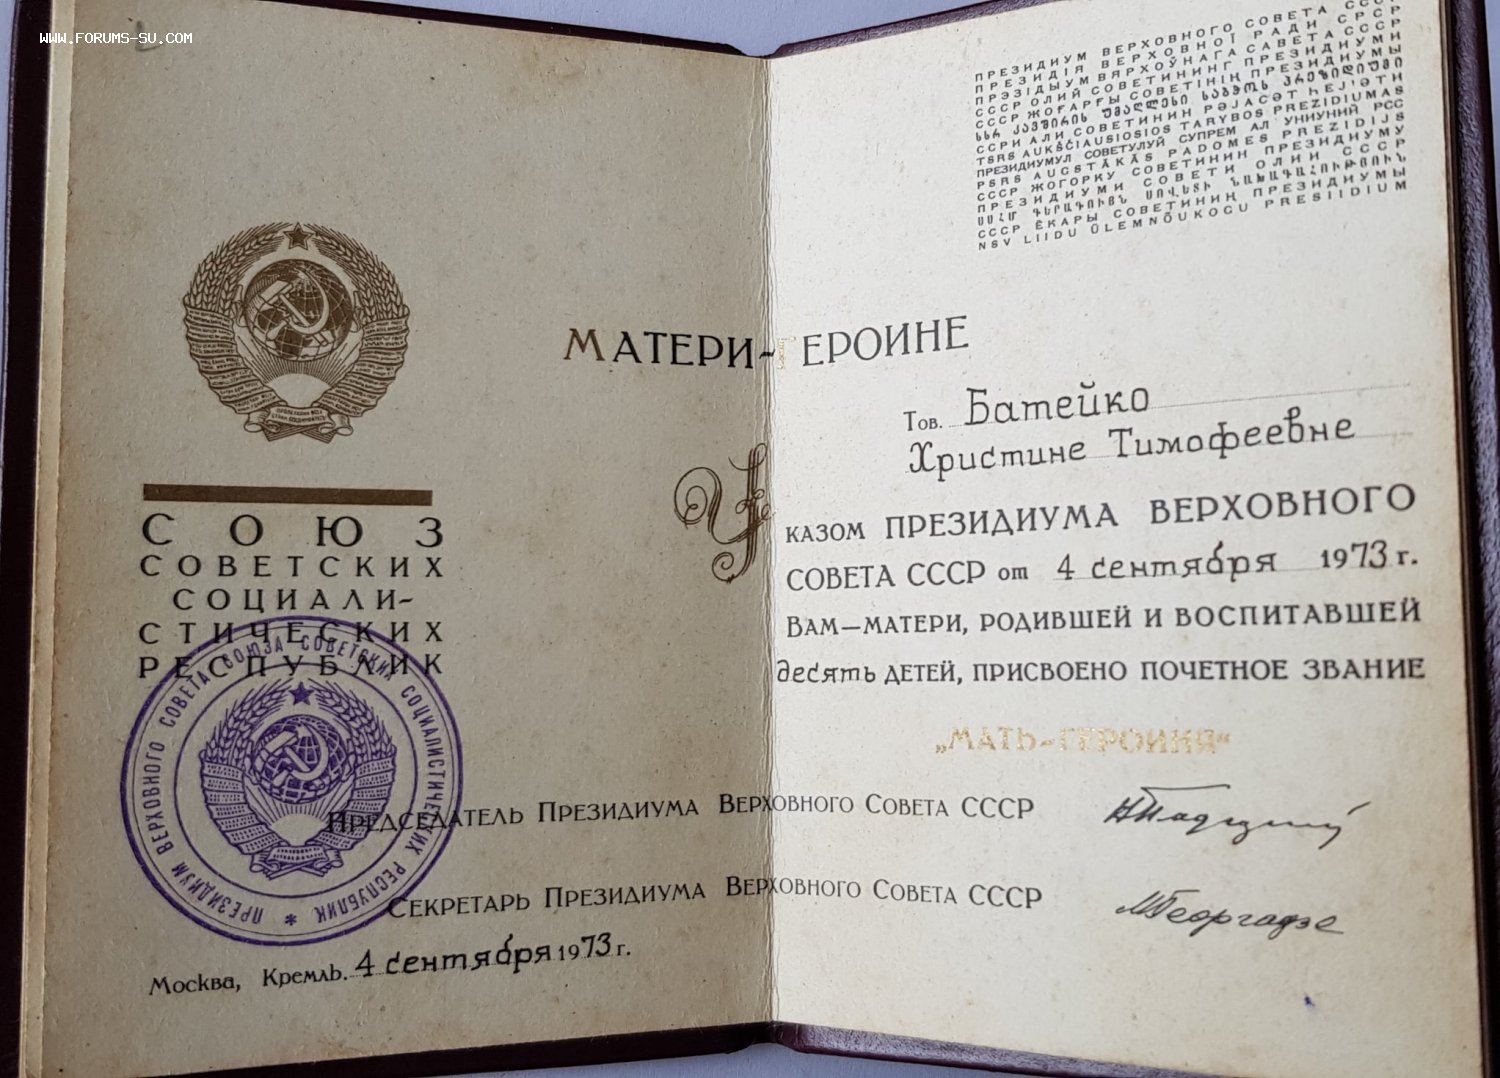 www.forums-su.com
СОЮЗ
СОВЕТСКИХ
СОЦИАЛИ-
СТИЧЕСКИХ
РЕСПУБЛИК
ПРЕЗИДИУМ ВЕРХОВНОГО СОВЕТА СОЮЗА СОВЕТСКИХ СОЦИАЛИСТИЧЕСКИХ РЕСПУБЛИК *
ПРЕЗИДИУМ ВЕРХОВНОГО СОВЕТА СССР
ПРЕЗИДІЯ ВЕРХОВНОЇ РАДИ СРСР
ПРЭЗІДЫУМ ВЯРХОЎНАГА САВЕТА СССР
СССР ОЛИЙ СОВЕТИНИНГ ПРЕЗИДИУМИ
СССР ЖОҒАРҒЫ СОВЕТІНІҢ ПРЕЗИДИУМЫ
ССРИ АЛИ СОВЕТИНИН РӘЈАСӘТ ҺЕЈ'ӘТИ
TSRS AUKŠČIAUSIOSIOS TARYBOS PREZIDIUMAS
ПРЕЗИДИУМУЛ СОВЕТУЛУЙ СУПРЕМ АЛ УНИУНИЙ РСС
PSRS AUGSTĀKĀS PADOMES PREZIDIJS
СССР ЖОГОРКУ СОВЕТИНИН ПРЕЗИДИУМУ
ПРЕЗИДИУМИ СОВЕТИ ОЛИИ СССР
СССР ЁКАРЫ СОВЕТИНИҢ ПРЕЗИДИУМЫ
NSV LIIDU ÜLEMNÕUKOGU PRESIIDIUM
МАТЕРИ-ГЕРОИНЕ
Тов. Батейко
Христине Тимофеевне
УКАЗОМ ПРЕЗИДИУМА ВЕРХОВНОГО
СОВЕТА СССР от 4 сентября 1973 г.
ВАМ—МАТЕРИ, РОДИВШЕЙ И ВОСПИТАВШЕЙ
десять ДЕТЕЙ, ПРИСВОЕНО ПОЧЕТНОЕ ЗВАНИЕ
„МАТЬ-ГЕРОИНЯ“
ПРЕДСЕДАТЕЛЬ ПРЕЗИДИУМА ВЕРХОВНОГО СОВЕТА СССР
СЕКРЕТАРЬ ПРЕЗИДИУМА ВЕРХОВНОГО СОВЕТА СССР МГеоргадзе
Москва, Кремль. 4 сентября 1973 г.